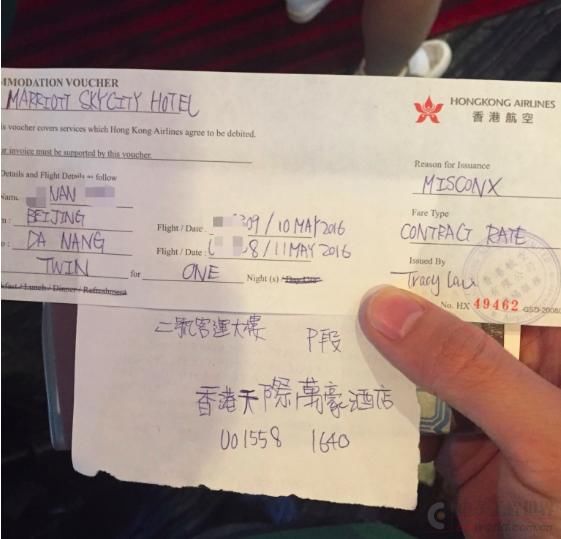 MMODATION VOUCHER
MARRIOTT SKYCITY HOTEL
s voucher covers services which Hong Kong Airlines agree to be debited.
invoice must be supported by this voucher.
HONGKONG AIRLINES
香港航空
Details and Flight Details as follow
Name. NAN
BEIJING
Flight / Date : 309 / 10 MAY 2016
DA NANG
Flight / Date : 8 / 11 MAY 2016
TWIN for ONE Night (s) Day Use
kfast / Lunch / Dinner / Refreshment
Reason for Issuance
MISCONX
Fare Type
CONTRACT RATE
Issued By
Tracy Lau
No. HX 49462 -GSD-2008/
二號客運大樓 P段
香港天際萬豪酒店
UO1558 1640